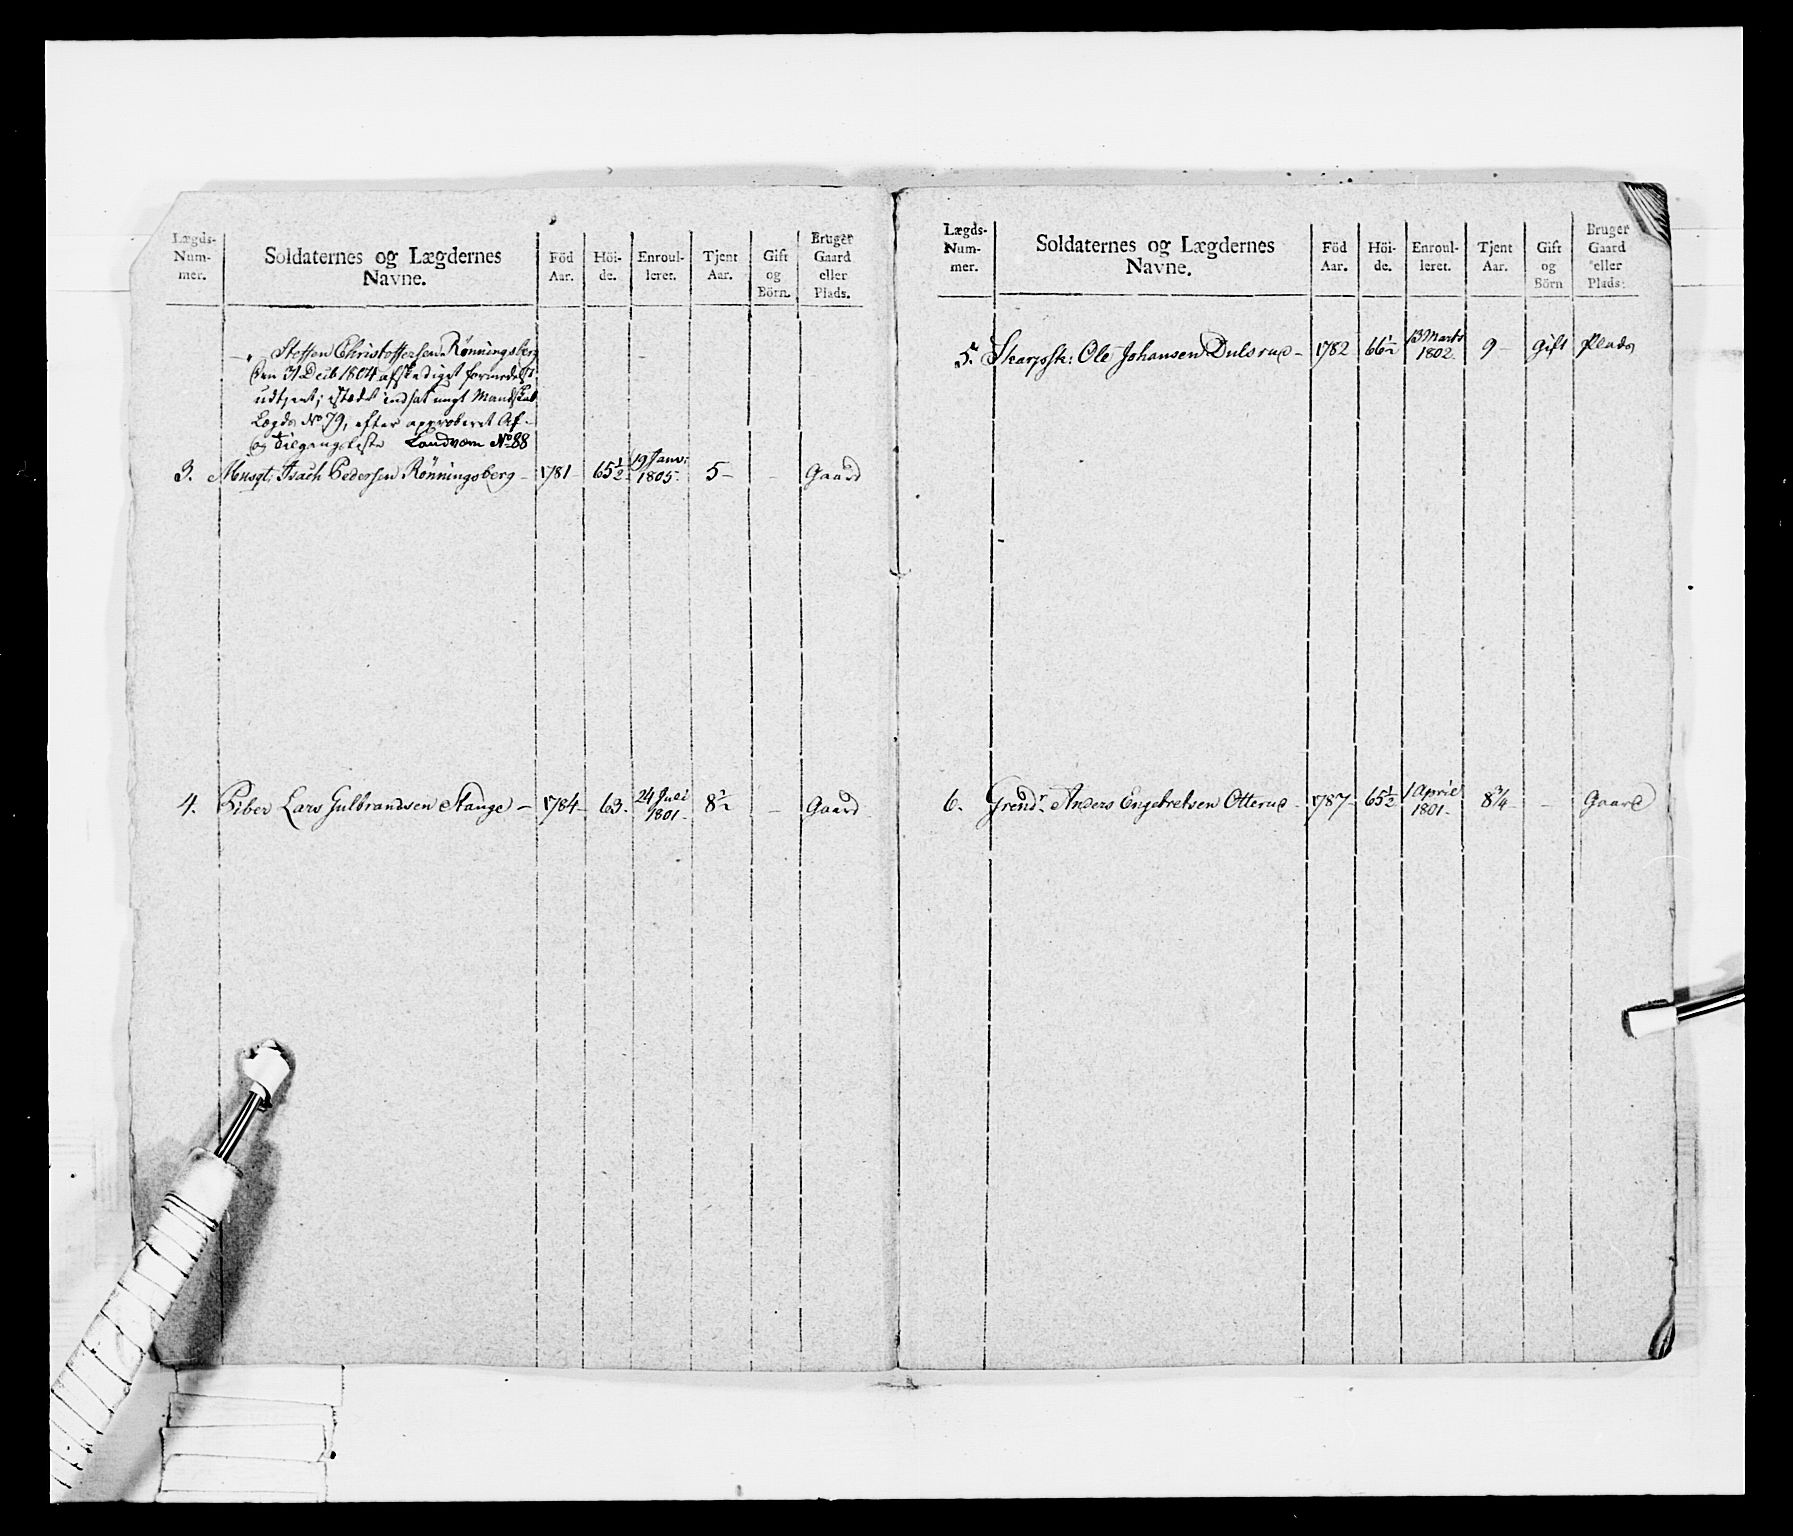 Lægds-Num-mer. Soldaternes og Lægdernes Navne. Föd Aar. Höi-de. Enroul-leret. Tjent Aar. Gift og Börn. Bruger Gaard eller Plads.
—„ Steffen Christoffersen Rönningsberg
den 31 Decb 1804 afskediget formedelst
udtjent; istædet indsat ungt Mandskab
Lægds No 79, efter approberet Af-
og Tilgangsliste Landvern No 88
3. Musqt: Isach Pedersen Rönningsberg — 1781 65½ 19 Janv: 1805. 5 — — Gaard
4. Piber Lars Gulbrandsen Stange — 1784 63. 24 Juli 1801. 8½ — Gaard
Lægds-Num-mer. Soldaternes og Lægdernes Navne. Föd Aar. Höi-de. Enroul-leret. Tjent Aar. Gift og Börn Bruger Gaard eller Plads.
5. Skarpsk: Ole Johansen Dulsrud — 1782 66½ 13 Marts 1802. 9 — Gift Plads
6. Grendr. Anders Engebretsen Otterud — 1787 65½ 1 April 1801. 8¾ — Gaard